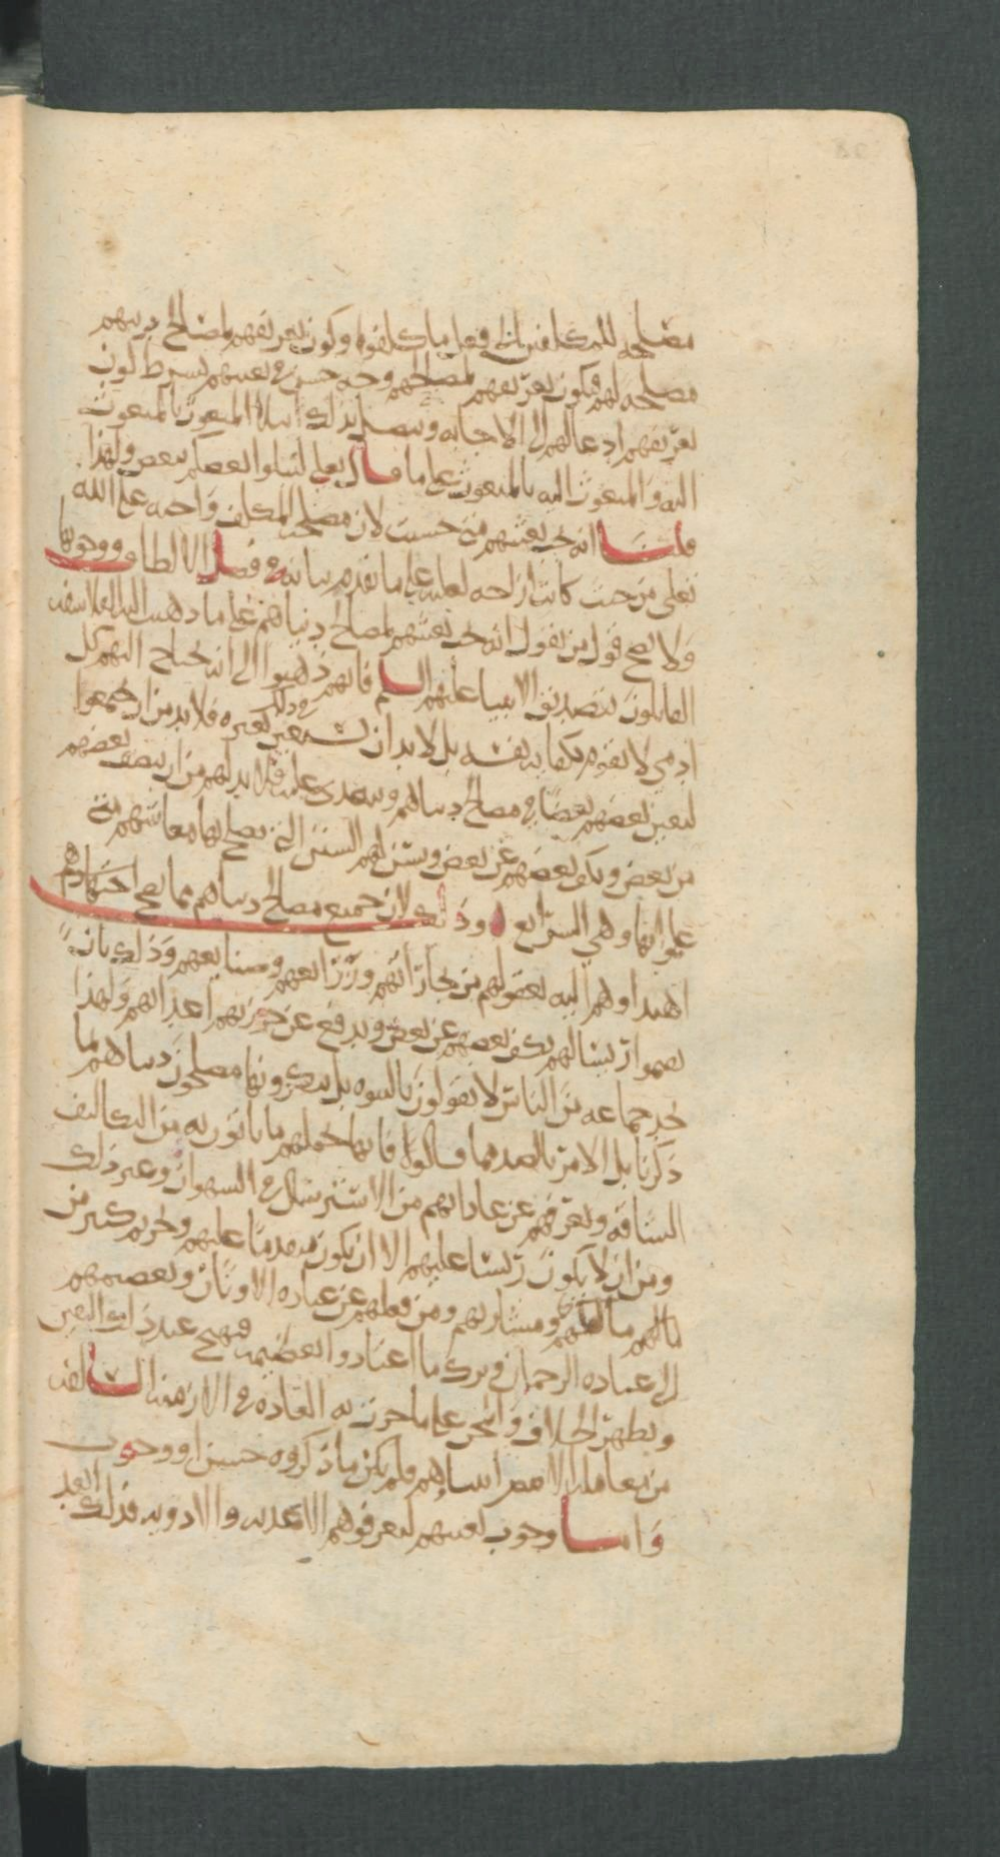 مصلحه للمكلفين في فعل ما كلفوه وكون تعريفهم لمصالح دينهم
مصلحه لهم فيكون تعريفهم لمصالحهم وجه حسن في بعثتهم بشرط كون
تعريفهم ادعا لهم الى الاجابه ويتصل بذلك ابتلا المبعوث بالمبعوث
اليه والمبعوث اليه بالمبعوث على ما قال تعلى لنبلوا بعضكم ببعض ولهذا
قلنا انه تجب بعثتهم متى حسنت لان مصلحه المكلف واجبه على الله
تعلى من حيث كانت ازاحه لعلته على ما تقدم بيانه في فصل الالطاف ووجوبها
ولا يصح قول من يقول انه تجب بعثتهم لمصالح دنياهم على ما ذهب اليه الفلاسفه
القايلون بتصديق الانبيا عليهم السلم فانهم ذهبوا الى انه يحتاج اليهم لان كل
ادمي لا يقوم بكفايه نفسه بل لابد ان يستعين بغيره في ذلك فلا بد من ان يجتمعوا
ليعين بعضهم بعضا في مصالح دنياهم ويتعدى عليه فلا بد لهم من ان ينصف بعضهم
من بعض ويكف بعضهم عن بعض ويسن لهم السنن التي تصلح بها معاشهم متى
عملوا بها وهي الشرايع وذلك لان جميع مصالح دنياهم مما يصح
اهتداوهم اليه بعقولهم من تجاراتهم وزراعتهم وصنايعهم وذلك بان
ينصبوا رئيسا لهم يكف بعضهم عن بعض ويدفع عن حوزتهم اعدائهم ولهذا
نجد جماعه من الناس لا يقولون بالنبوه بل ينكرونها مصلحون دنياهم بما
ذكرنا بل الامر بالضد مما قالوا فانها تحملهم ما ياتون به من التكاليف
الشاقه وتصرفهم عن عاداتهم من الاسترسال في الشهوات وغير ذلك
ومن ان لا يكون رئيسا عليهم الا ان يكون متقدما عليهم وتحريم كثير من
مالهم ومشاربهم ومن فعلهم عن عباده الاوثان وبعضهم
الى عباده الرحمان في ترك ما اعتادوا تعظيمه فيهيج عند ذلك الفتن
ويظهر الخلاف والتحرب على ما جرت به العاده في الازمنه السالفه
من معامله الامم انبياهم فلم يكن ما ذكروه حسنا ووجوب
واما وجوب بعثتهم ليعرفوهم الاغذيه والادويه فذلك ابعد